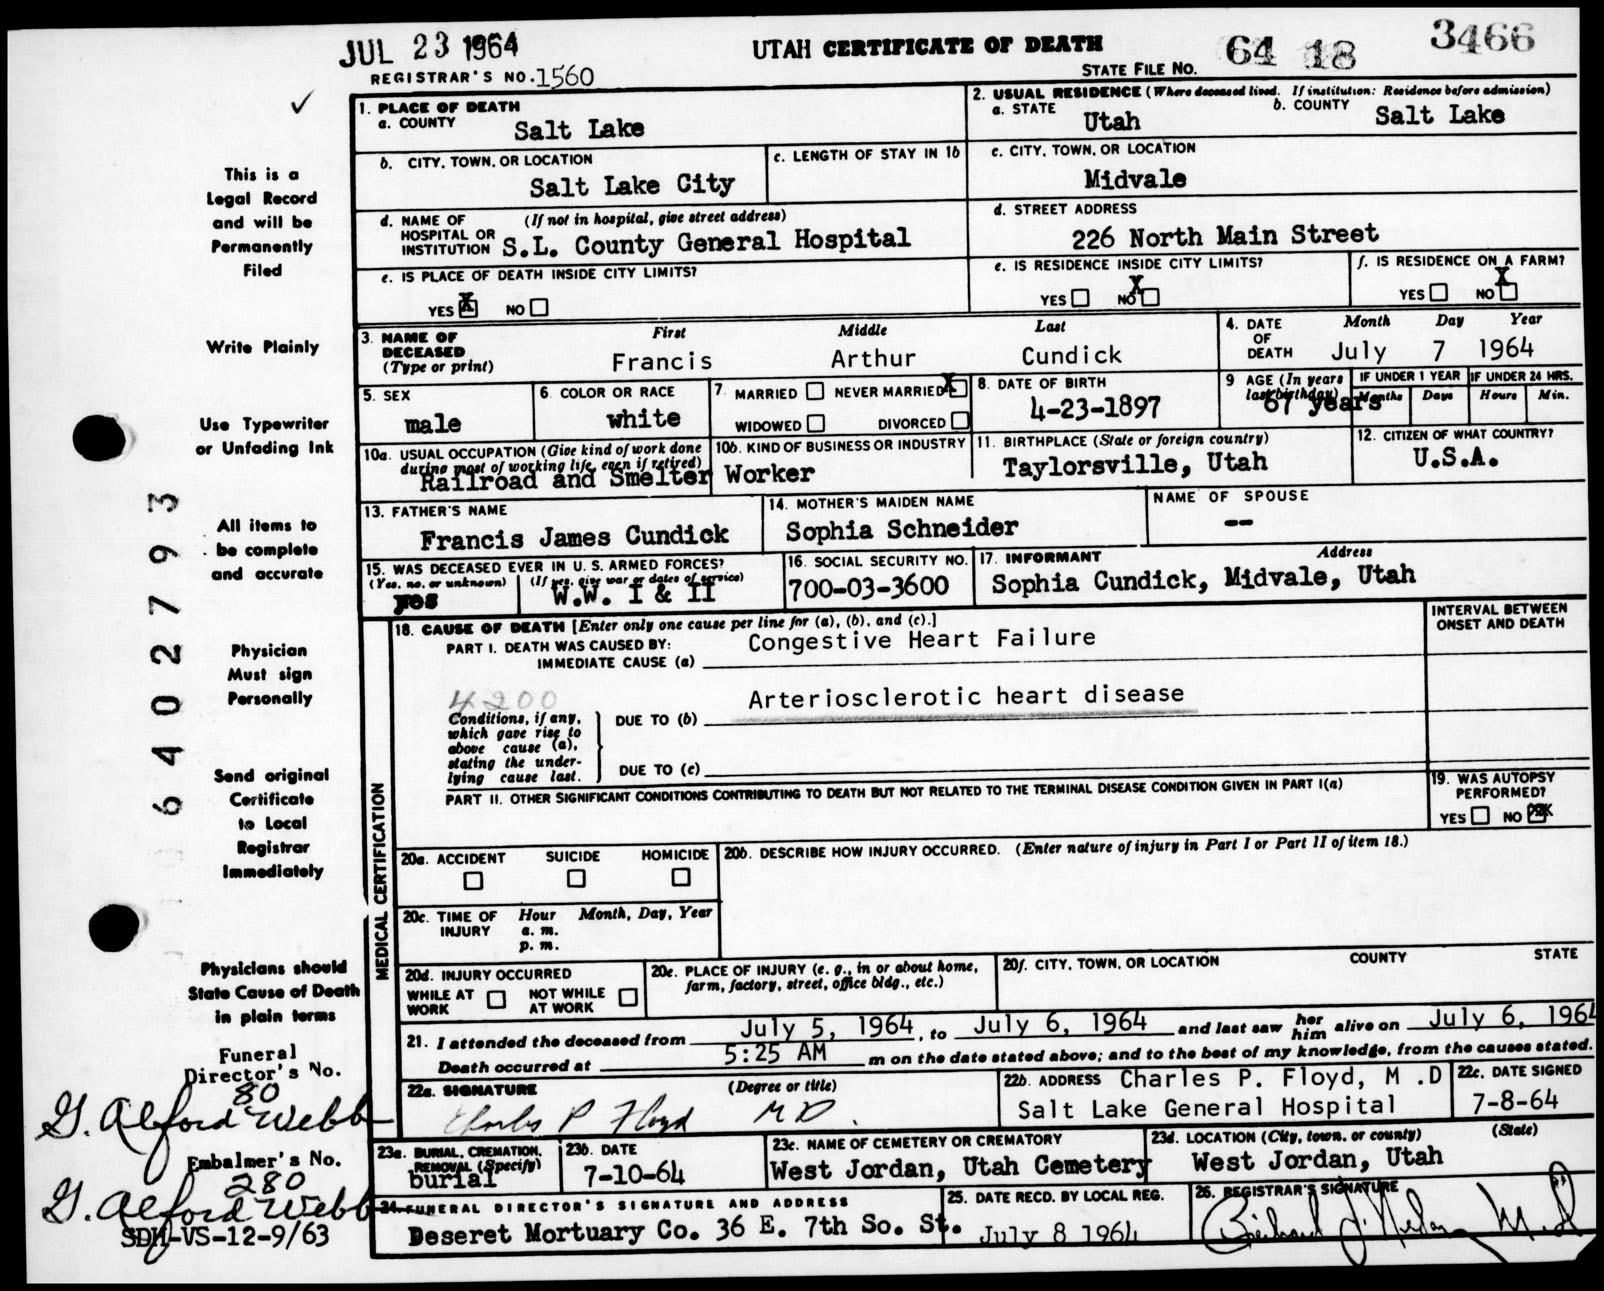 JUL 23 1964
UTAH CERTIFICATE OF DEATH
64 18 3466
REGISTRAR'S NO. 1560
STATE FILE NO.
✓
This is a
Legal Record
and will be
Permanently
Filed
Write Plainly
Use Typewriter
or Unfading Ink
All items to
be complete
and accurate
Physician
Must sign
Personally
Send original
Certificate
to Local
Registrar
Immediately
Physicians should
State Cause of Death
in plain terms
Funeral
Director's No.
80
G. Alford Webb
Embalmer's No.
280
G. Alford Webb
SDH-VS-12-9/63
6402793
1. PLACE OF DEATH
a. COUNTY Salt Lake
2. USUAL RESIDENCE (Where deceased lived. If institution: Residence before admission)
a. STATE Utah b. COUNTY Salt Lake
b. CITY, TOWN, OR LOCATION
Salt Lake City
c. LENGTH OF STAY IN 1b
c. CITY, TOWN, OR LOCATION
Midvale
d. NAME OF (If not in hospital, give street address)
HOSPITAL OR
INSTITUTION S.L. County General Hospital
d. STREET ADDRESS
226 North Main Street
e. IS PLACE OF DEATH INSIDE CITY LIMITS?
YES X NO
e. IS RESIDENCE INSIDE CITY LIMITS?
YES NO X
f. IS RESIDENCE ON A FARM?
YES NO X
3. NAME OF First Middle Last
DECEASED
(Type or print) Francis Arthur Cundick
4. DATE Month Day Year
OF
DEATH July 7 1964
5. SEX
male
6. COLOR OR RACE
white
7. MARRIED NEVER MARRIED X
WIDOWED DIVORCED
8. DATE OF BIRTH
4-23-1897
9 AGE (In years
last birthday)
67 years
IF UNDER 1 YEAR
Months Days
IF UNDER 24 HRS.
Hours Min.
10a. USUAL OCCUPATION (Give kind of work done
during most of working life, even if retired)
Railroad and Smelter
10b. KIND OF BUSINESS OR INDUSTRY
Worker
11. BIRTHPLACE (State or foreign country)
Taylorsville, Utah
12. CITIZEN OF WHAT COUNTRY?
U.S.A.
13. FATHER'S NAME
Francis James Cundick
14. MOTHER'S MAIDEN NAME
Sophia Schneider
NAME OF SPOUSE
--
15. WAS DECEASED EVER IN U. S. ARMED FORCES?
(Yes, no, or unknown) (If yes, give war or dates of service)
yes W.W. I & II
16. SOCIAL SECURITY NO.
700-03-3600
17. INFORMANT Address
Sophia Cundick, Midvale, Utah
MEDICAL CERTIFICATION
18. CAUSE OF DEATH [Enter only one cause per line for (a), (b), and (c).]
PART I. DEATH WAS CAUSED BY:
IMMEDIATE CAUSE (a) Congestive Heart Failure
INTERVAL BETWEEN
ONSET AND DEATH
4200
Conditions, if any,
which gave rise to
above cause (a),
stating the under-
lying cause last.
DUE TO (b) Arteriosclerotic heart disease
DUE TO (c)
PART II. OTHER SIGNIFICANT CONDITIONS CONTRIBUTING TO DEATH BUT NOT RELATED TO THE TERMINAL DISEASE CONDITION GIVEN IN PART I(a)
19. WAS AUTOPSY
PERFORMED?
YES NO
20a. ACCIDENT SUICIDE HOMICIDE
20b. DESCRIBE HOW INJURY OCCURRED. (Enter nature of injury in Part I or Part II of item 18.)
20c. TIME OF Hour Month, Day, Year
INJURY a. m.
p. m.
20d. INJURY OCCURRED
WHILE AT NOT WHILE
WORK AT WORK
20e. PLACE OF INJURY (e. g., in or about home,
farm, factory, street, office bldg., etc.)
20f. CITY, TOWN, OR LOCATION COUNTY STATE
21. I attended the deceased from July 5, 1964, to July 6, 1964 and last saw her him alive on July 6, 1964
Death occurred at 5:25 AM m on the date stated above; and to the best of my knowledge, from the causes stated.
22a. SIGNATURE (Degree or title)
Charles P Floyd MD.
22b. ADDRESS Charles P. Floyd, M .D
Salt Lake General Hospital
22c. DATE SIGNED
7-8-64
23a. BURIAL, CREMATION,
REMOVAL (Specify)
burial
23b. DATE
7-10-64
23c. NAME OF CEMETERY OR CREMATORY
West Jordan, Utah Cemetery
23d. LOCATION (City, town, or county) (State)
West Jordan, Utah
24. FUNERAL DIRECTOR'S SIGNATURE AND ADDRESS
Deseret Mortuary Co. 36 E. 7th So. St.
25. DATE RECD. BY LOCAL REG.
July 8 1964
26. REGISTRAR'S SIGNATURE